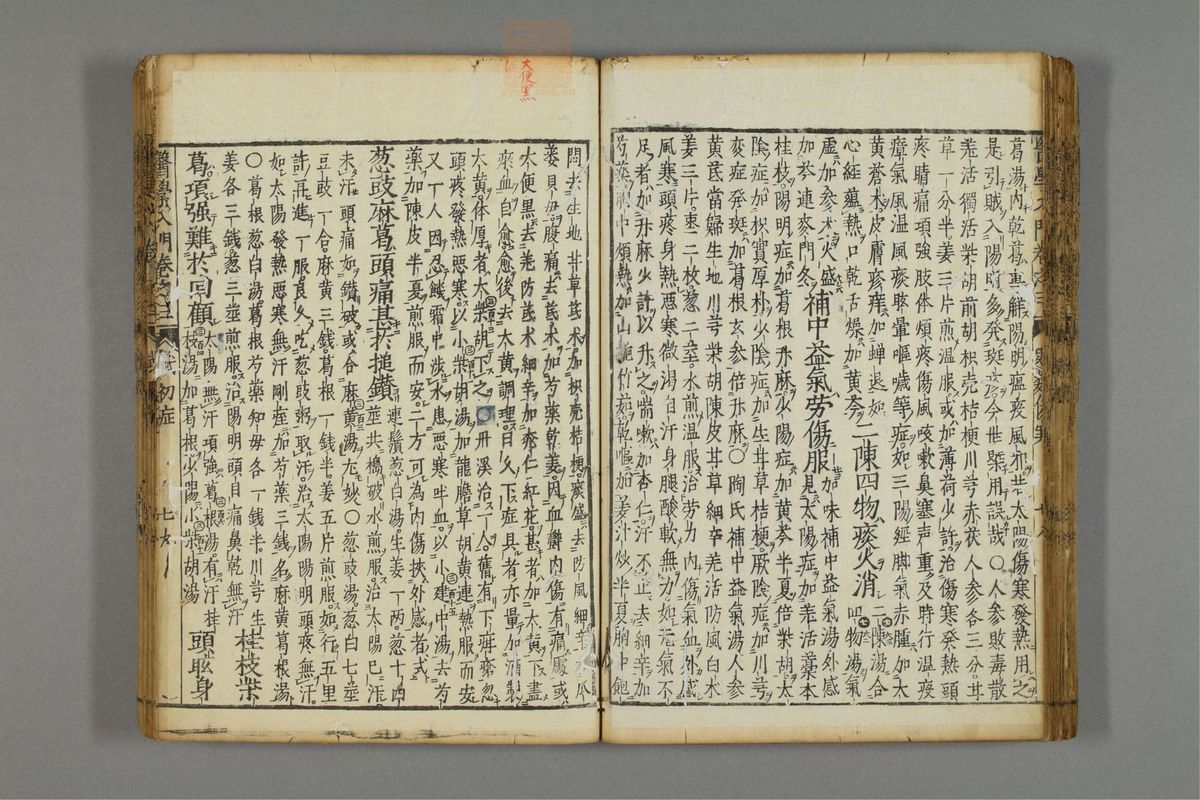 葛湯內乾葛重解陽明瘟疫風邪共太陽傷寒發熱用之
是引賊入陽明多發斑疹今世槩用誤哉○人參敗毒散
羗活獨活柴胡前胡枳壳桔梗川芎赤茯人參各三分甘
草一分半姜三片煎溫服或加薄荷少許治傷寒発熱頭
疼睛痛項強肢体煩疼傷風咳嗽鼻塞声重及時行温疫
瘴氣風温風痰眩暈嘔噦等症如三陽經脚氣赤腫加大
黄蒼朮皮膚疹痒加蟬退如
心經蘊熱口乾舌燥加黄芩二陳四物痰火消二陳湯合四物湯氣
虚加參朮火盛
加芩連麥門冬補中益氣勞傷服見加味補中益氣湯外感太陽症加羌活藁本
桂枝陽明症加葛根升麻少陽症加黄芩半夏倍柴胡太
陰症加枳實厚朴少陰症加生甘草桔梗厥陰症加川芎
変症発斑加葛根玄參倍升麻○陶氏補中益氣湯人參
黄芪當歸生地川芎柴胡陳皮甘草細辛羌活防風白朮
姜三片枣二枚葱二莖水煎温服治劳力內傷氣血外感
風寒頭疼身熱悪寒微渴自汗身腿酸軟無力如元氣不
足者加升麻少許以升之喘嗽加杏仁汗不止去細辛加
芍薬胸中煩熱加山梔竹茹乾嘔加姜汁炒半夏胸中飽
悶去生地甘草芪朮加枳壳桔梗痰盛去防風細辛加瓜
蔞貝母腹痛去芪朮加芍薬乾姜因血鬱內傷有痛處或
大便黒去羌防芪朮細辛加桃仁紅花甚者加大黄下盡
瘀血自愈愈後去大黄調理日久下症具者亦量加酒製
大黄体厚者大柴胡下之○丹溪治一人舊有下疳瘡忽
頭疼發熱悪寒以小柴胡湯加龍膽草胡黄連熱服而安
又一人因忍饑霜中渉水患悪寒半血以小建中湯去芍
薬加陳皮半夏煎服而安二方可為內傷挟外感者式
葱豉麻葛頭痛甚於搥鑚連鬚葱白湯生姜一兩葱十四莖共搗破水煎服治太陽已汗
未汗頭痛如鑚破或合麻黄湯尤妙○葱豉湯葱白七莖
豆豉一合麻黄三錢葛根一錢半姜五片煎服如行五里
許再進一服良久吃葱豉粥取汗治太陽陽明頭疼無汗
如太陽發熱悪寒無汗剛痓加芍薬三錢名麻黄葛根湯
○葛根葱白湯葛根芍薬知毋各一錢半川芎生
姜各三錢葱三莖煎服治陽明頭目痛鼻乾無汗桂枝柴
葛項強難於回顧太陽無汗項強葛根湯有汗桂枝湯加葛根少陽小柴胡湯頭眩身
醫學入門卷之三
初症
七九
大便黒